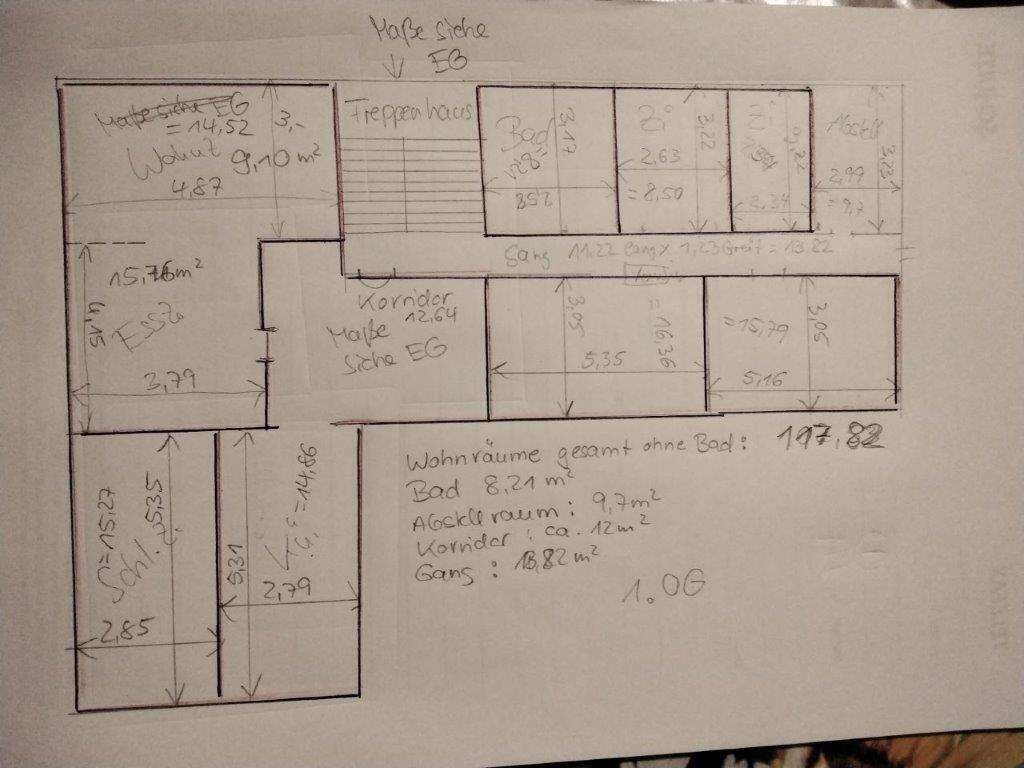 Maße siehe
EG
Maße siehe EG
= 14,52
Wohnz
9,10 m²
4,87
3,-
Treppenhaus
Bad
8,21
3,17
2,63
= 8,50
3,22
Abstell
2,99
= 9,7
3,23
Gang 11.22 lang x 1,23 Breit = 13.82
15,76 m²
Essz.
4,15
3,79
Korridor
12,64
Maße
siehe EG
3,05
5,35
= 16,36
= 15,79
3,06
5,16
= 15,27
Schl.
5,35
2,85
= 14,66
5,31
2,79
Wohnräume gesamt ohne Bad: 117,82
Bad 8,21 m²
Abstellraum: 9,7 m²
Korridor: ca. 12 m²
Gang: 13,82 m²
1. OG